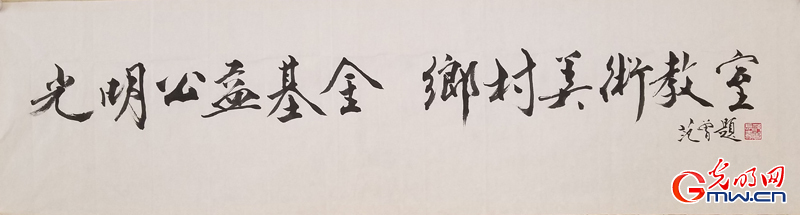 光明公益基金 鄉村美術教室
范曾題
光明网
Gmw.cn